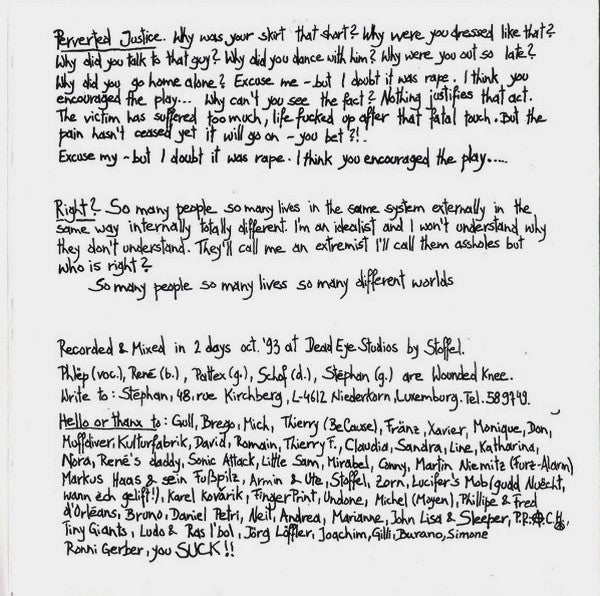 Perverted Justice. Why was your skirt that short? Why were you dressed like that?
Why did you talk to that guy? Why did you dance with him? Why were you out so late?
Why did you go home alone? Excuse me - but I doubt it was rape. I think you
encouraged the play... Why can't you see the fact? Nothing justifies that act.
The victim has suffered too much, life fucked up after that fatal touch. But the
pain hasn't ceased yet it will go on - you bet?!.
Excuse my - but I doubt it was rape. I think you encouraged the play.....
Right? So many people so many lives in the same system externally in the
same way internally totally different. I'm an idealist and I won't understand why
they don't understand. They'll call me an extremist I'll call them assholes but
who is right?
So many people so many lives so many different worlds
Recorded & Mixed in 2 days oct. '93 at Dead Eye Studios by Stoffel.
Phlëp (voc.), René (b.), Pattex (g.), Schof (d.), Stéphan (g.) are Wounded Knee.
Write to: Stéphan, 48, rue Kirchberg, L-4612 Niederkorn, Luxemburg. Tel. 589749.
Hello or thanx to: Gull, Brego, Mich, Thierry (BeCause), Fränz, Xavier, Monique, Don,
Muffdiver, Kulturfabrik, David, Romain, Thierry F., Claudia, Sandra, Line, Katharina,
Nora, René's daddy, Sonic Attack, Little Sam, Mirabel, Conny, Martin Niemitz (Furz-Alarm)
Markus Haas & sein Fußpilz, Armin & Ute, Stoffel, Zorn, Lucifer's Mob (gudd Nuecht,
wann ech gelift!), Karel Kovarik, FingerPrint, Undone, Michel (Moyen), Phillipe & Fred
d'Orléans, Bruno, Daniel Petri, Neil, Andrea, Marianne, John Lisa & Sleeper, P.R.
Tiny Giants, Ludo & Ras l'bol, Jörg Löffler, Joachim, Gilli, Burano, Simone
Ronni Gerber, you SUCK!!